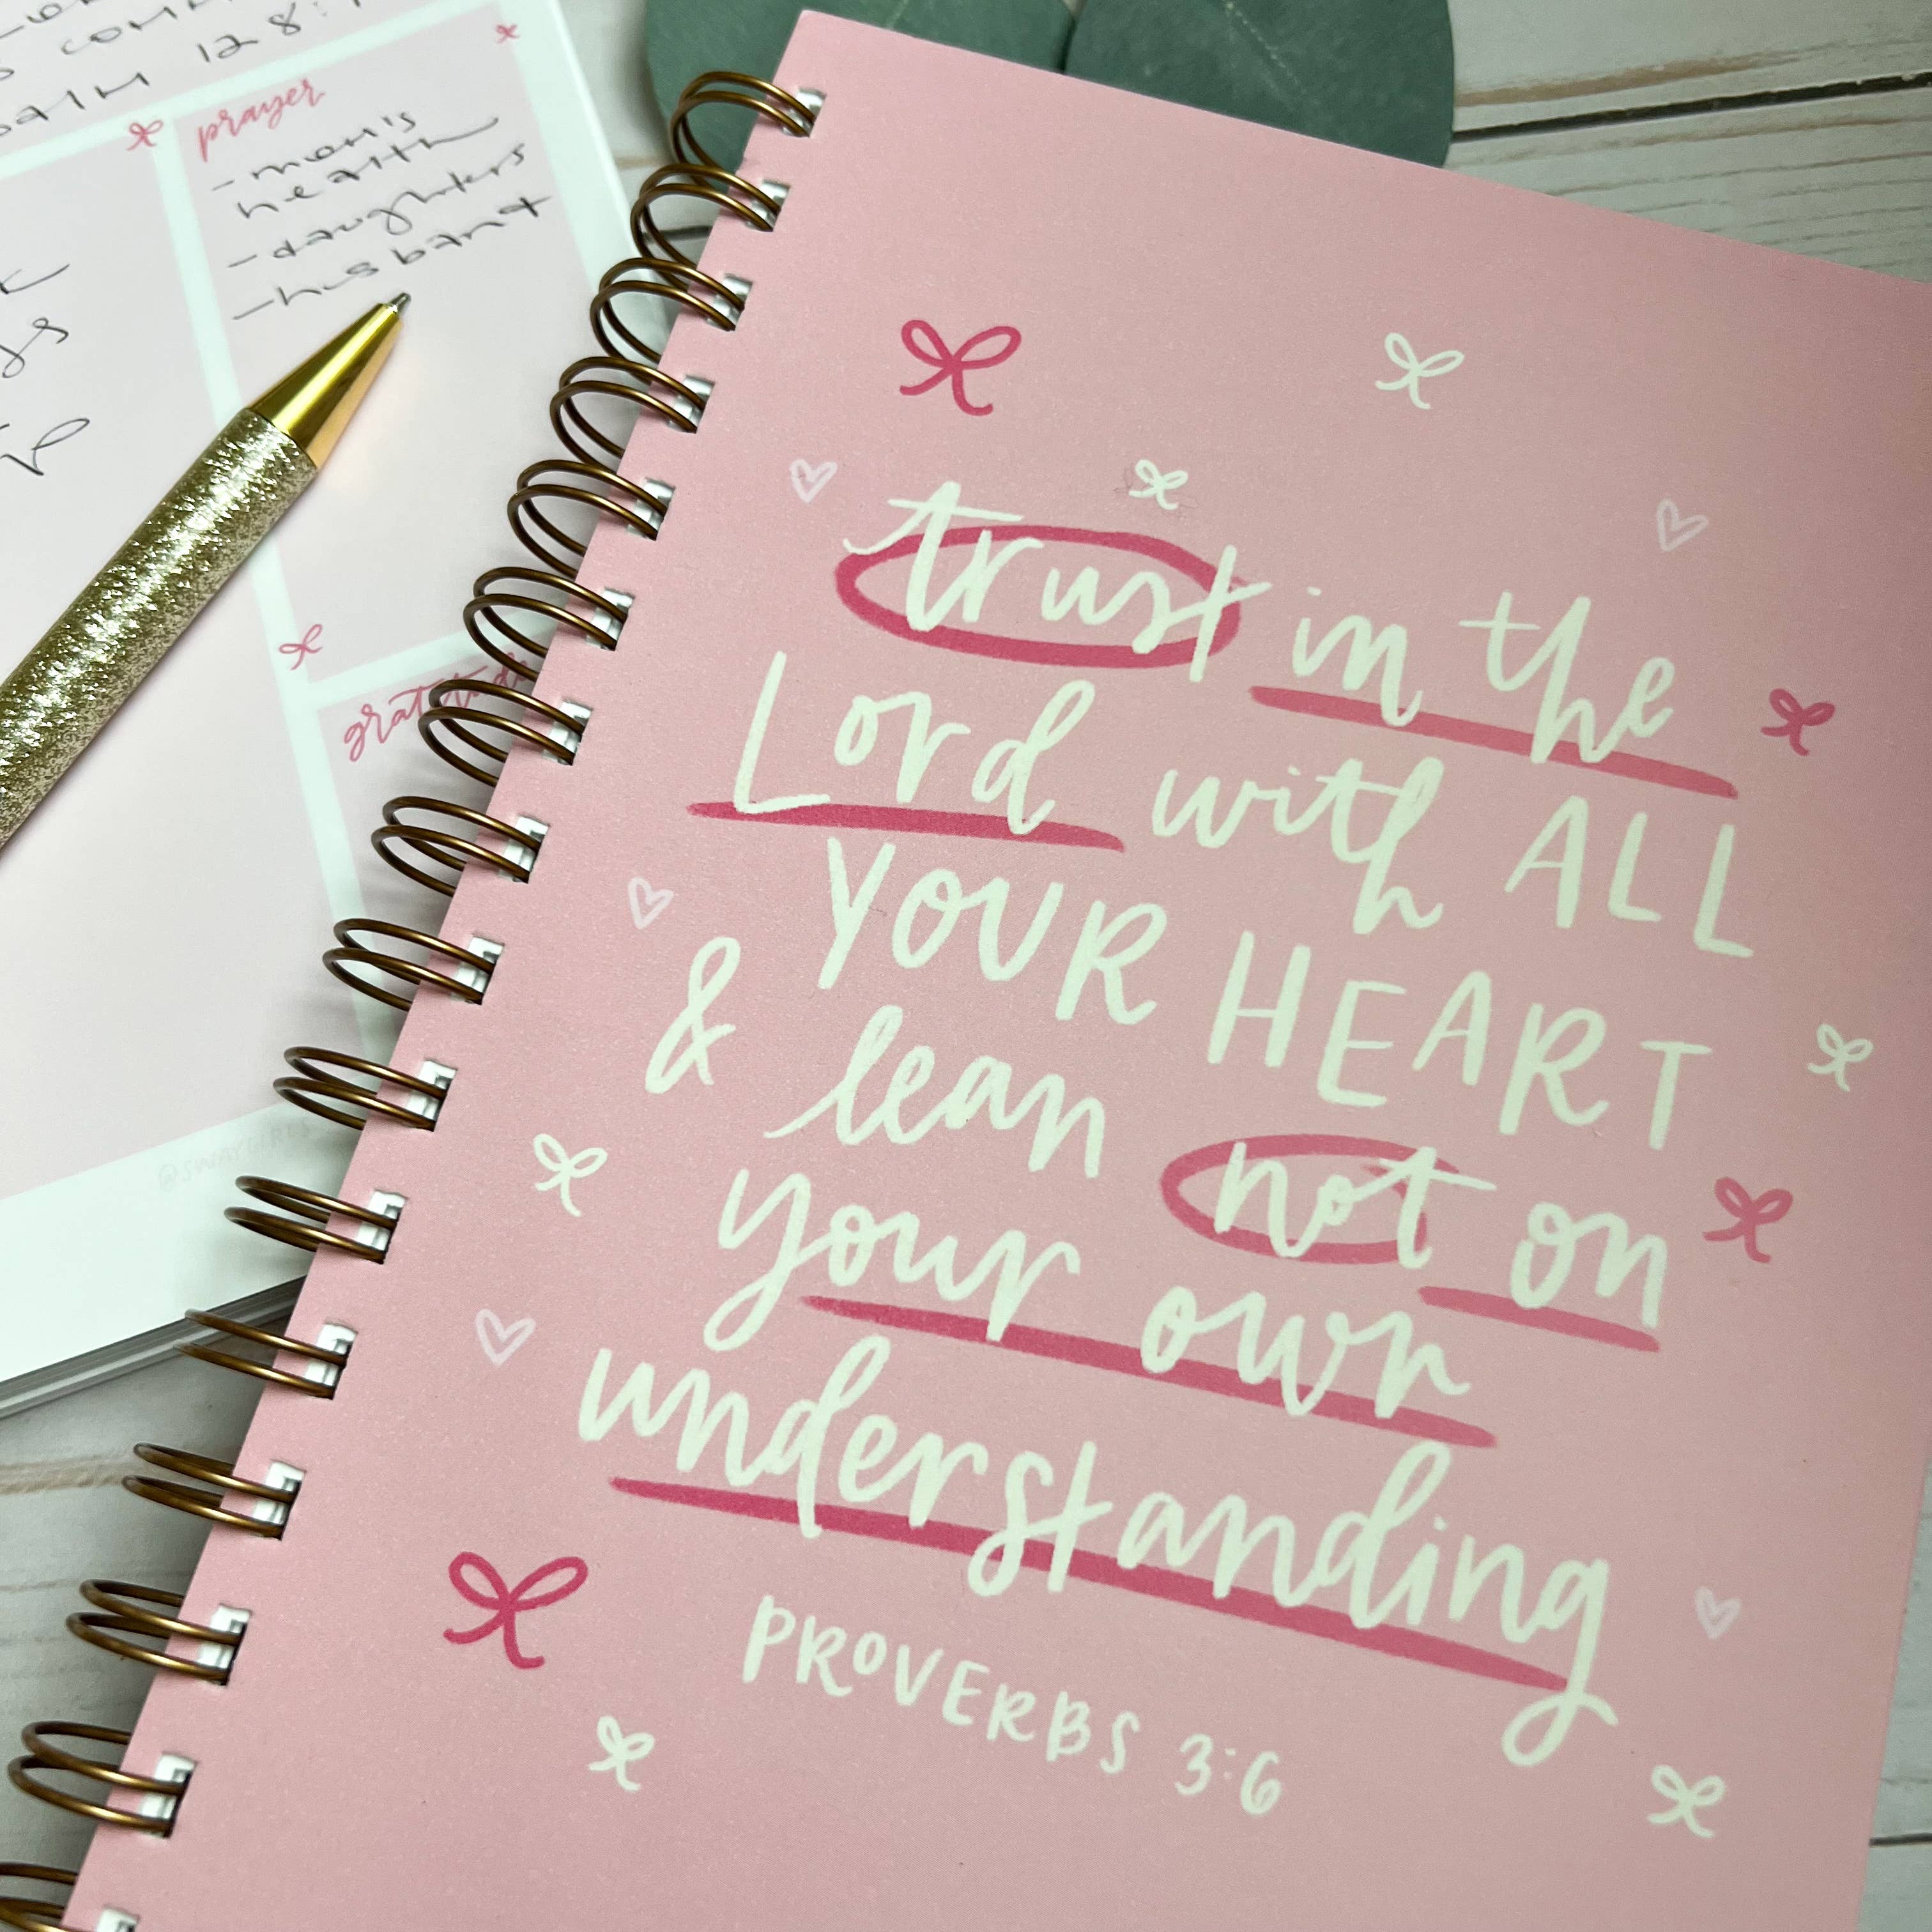 128:1
prayer
- mom's
health
- daughters
- husband
gratitude
@SWAYGIRLS
trust in the
Lord with ALL
YOUR HEART
& lean not on
your own
understanding
PROVERBS 3:6